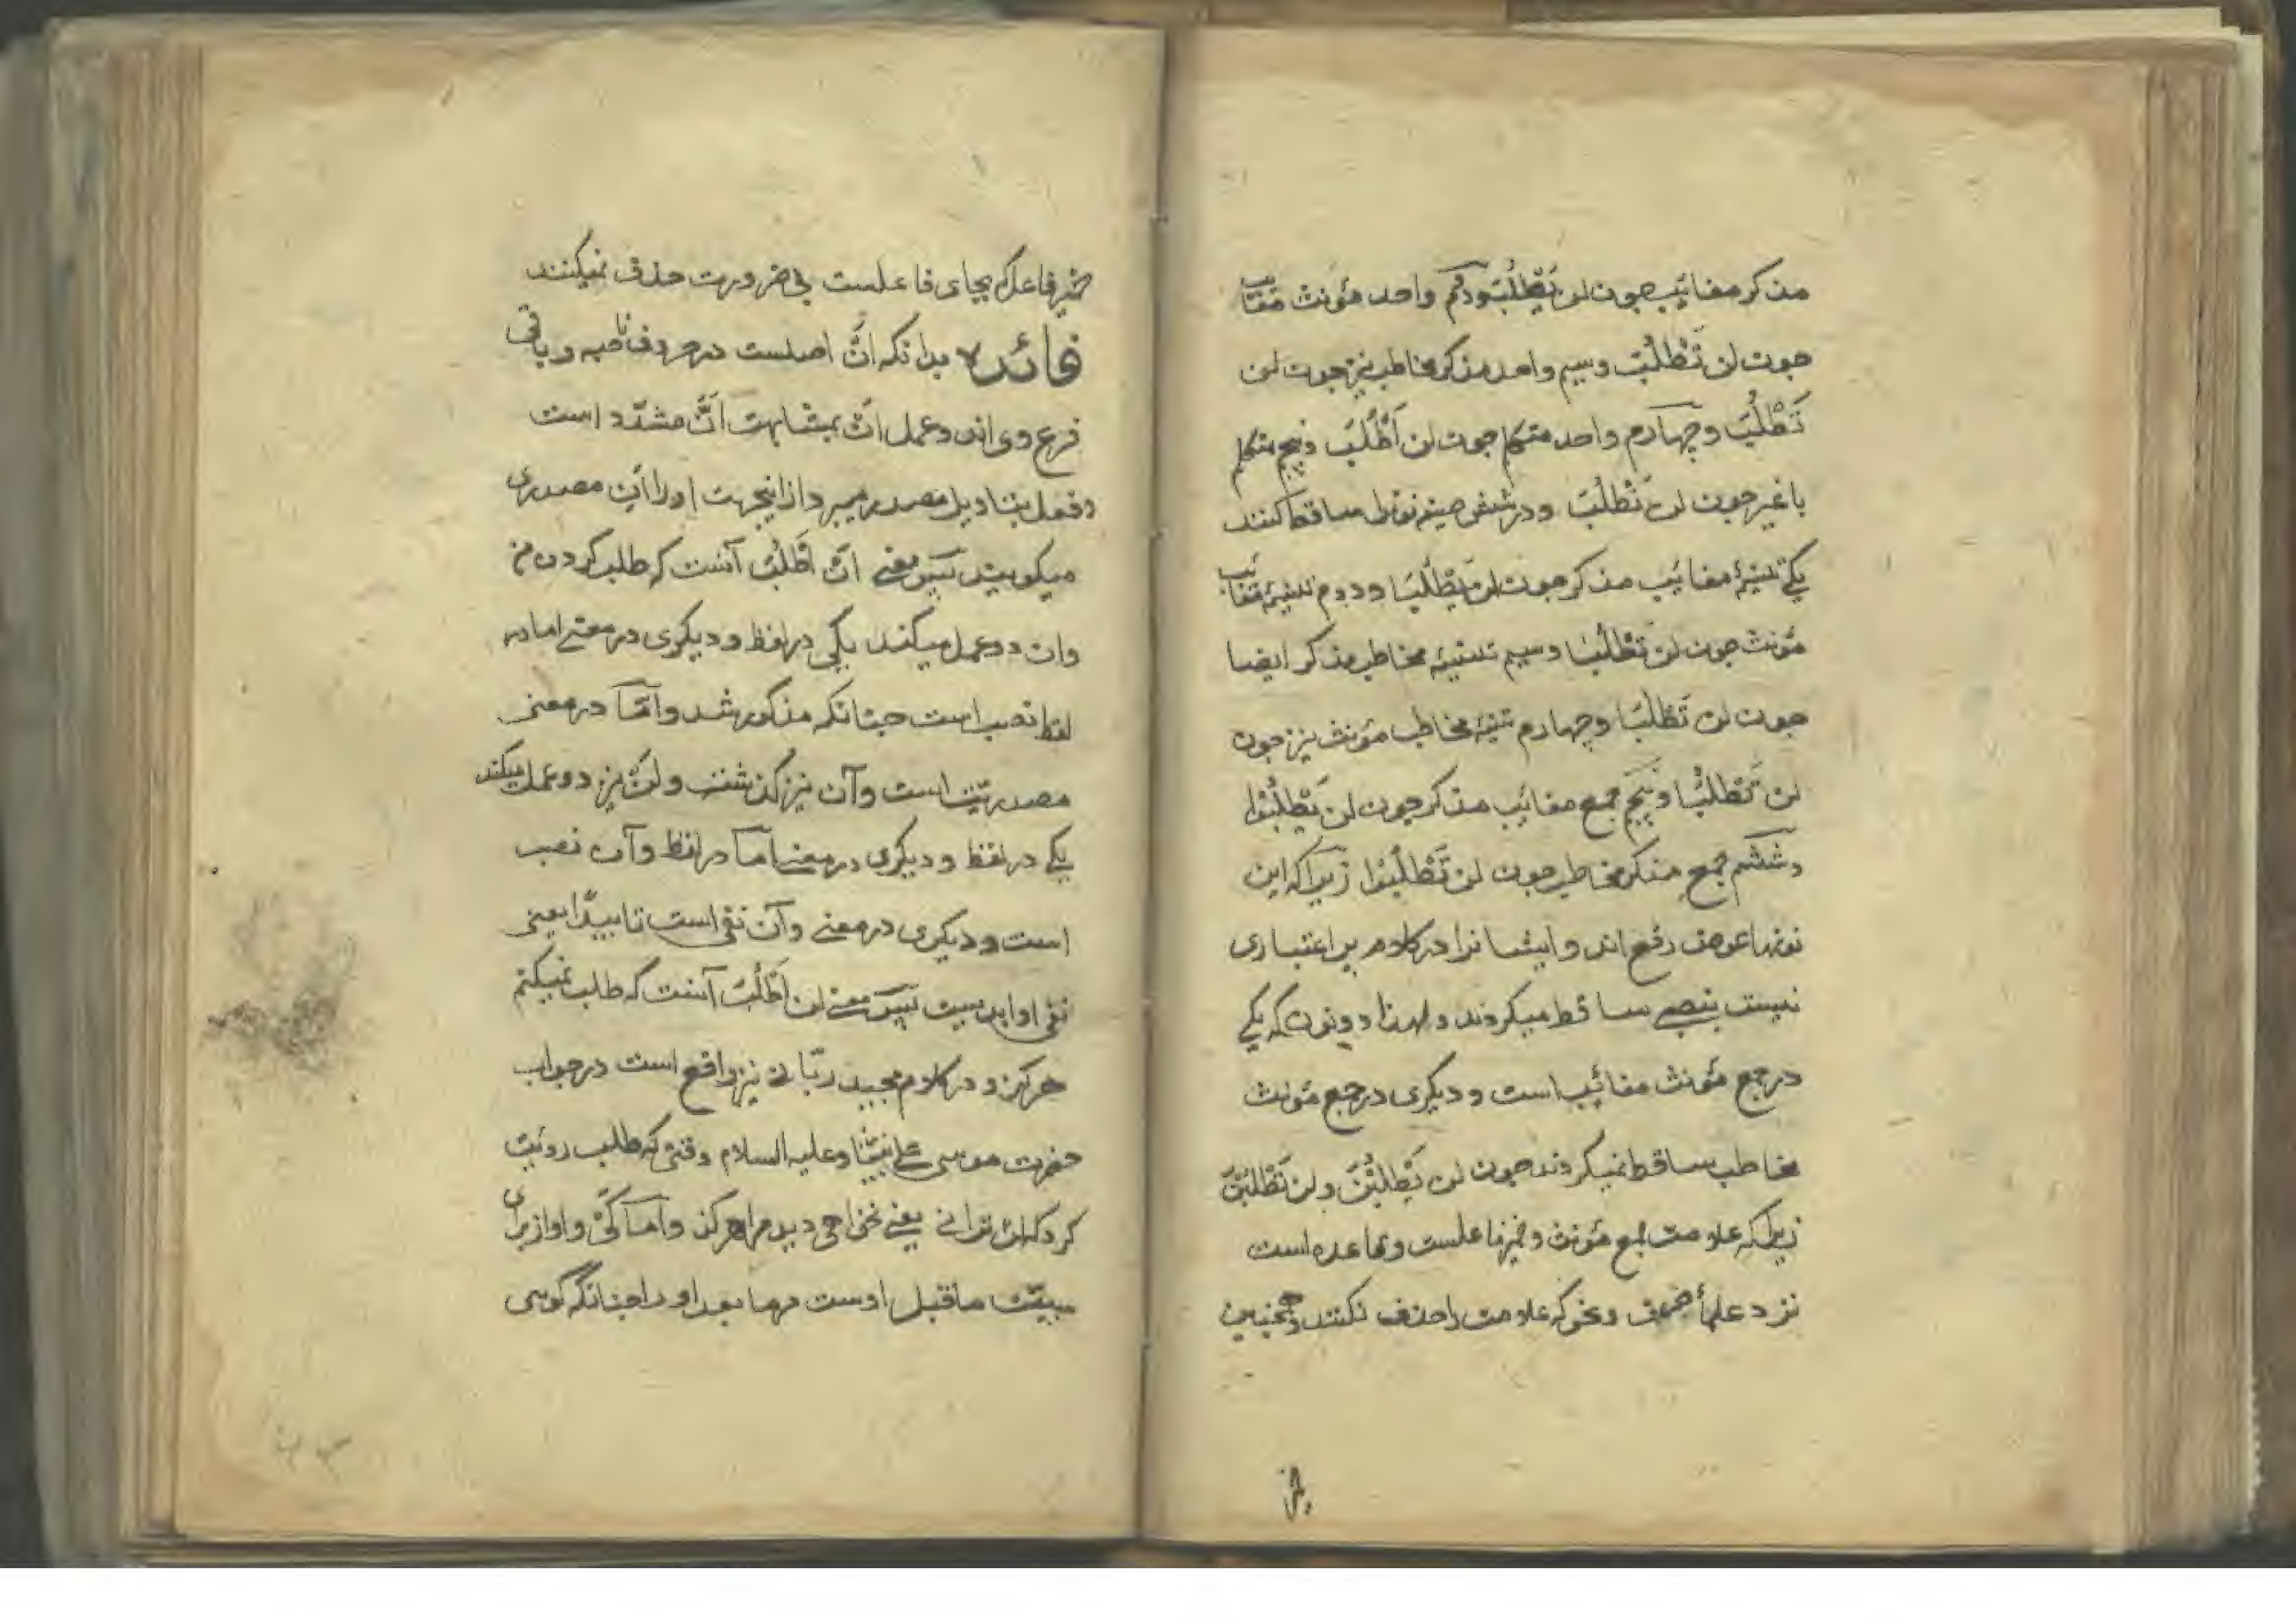 مذکر مغائب چون لن یَطْلُبَ ودویم واحد مؤنث مغائب
چون لن تَطْلُبَ وسیم واحد مذکر مخاطب نیز چون لن
تَطْلُبَ وچهارم واحد متکلم چون لن اَطْلُبَ وپنجم متکلم
با غیر چون لن نَطْلُبَ ودر شش صیغه نونرا ساقط کنند
یکی تثنیۀ مغائب مذکر چون لن یَطْلُبَا ودوم تثنیۀ مغائب
مؤنث چون لن تَطْلُبَا وسیم تثنیۀ مخاطب مذکر ایضا
چون لن تَطْلُبَا وچهارم تثنیۀ مخاطب مؤنث نیز چون
لن تَطْلُبَا وپنجم جمع مغائب مذکر چون لن یَطْلُبُوا
وششم جمع مذکر مخاطب چون لن تَطْلُبُوا زیرا که این
نونها عوض رفع اند وایشانرا در کلام بر اعتباری
نیست بنصبی ساقط میکردند ولهذا دو نون که یکی
در جمع مؤنث مغائب است ودیکری در جمع مؤنث
مخاطب ساقط نمیکردند چون لن یَطْلُبْنَ ولن تَطْلُبْنَ
زیرا که علامت جمع مؤنث وضمیر فاعلست وقاعده است
نزد علمأ صرف ونحو که علامت را حذف نکنند وهمچنین
ضمیر فاعل که بجای فاعلست بی ضرورت حذف نمیکنند
فائده بدانکه اَنْ اصلست در حروف ناصبه وباقی
فرع وی اند وعمل اَنْ بمشابهت اَنَّ مشدّد است
وفعل بتاویل مصدر میبرد ازاینجهت اورا اَن مصدری
میکویند پس معنی اَنْ اَطْلُبَ آنست که طلب کردن من
وان دو عمل میکند یکی در لفظ ودیکری در معنی اما در
لفظ نصب است چنانکه مذکور شد وامّا در معنی
مصدریّت است وآن نیز کذشت ولَنْ نیز دو عمل میکند
یکی در لفظ ودیکری در معنی امّا در لفظ وآن نصب
است ودیکری در معنی وآن نفی است تابیدًا یعنی
نفی او ابدیست پس معنی لن اَطْلُبَ آنست که طلب نمیکنم
هرکز ودر کلام مجید ربّانی نیز واقع است در جواب
حضرت موسی علی نبیّنا وعلیه السلام وقتی که طلب رویت
کرد که لن ترانی یعنی نخواهی دید مرا هرکز وامّا کَیْ واو از برای
سببیّت ماقبل اوست مر مابعد او را چنانکه کویی